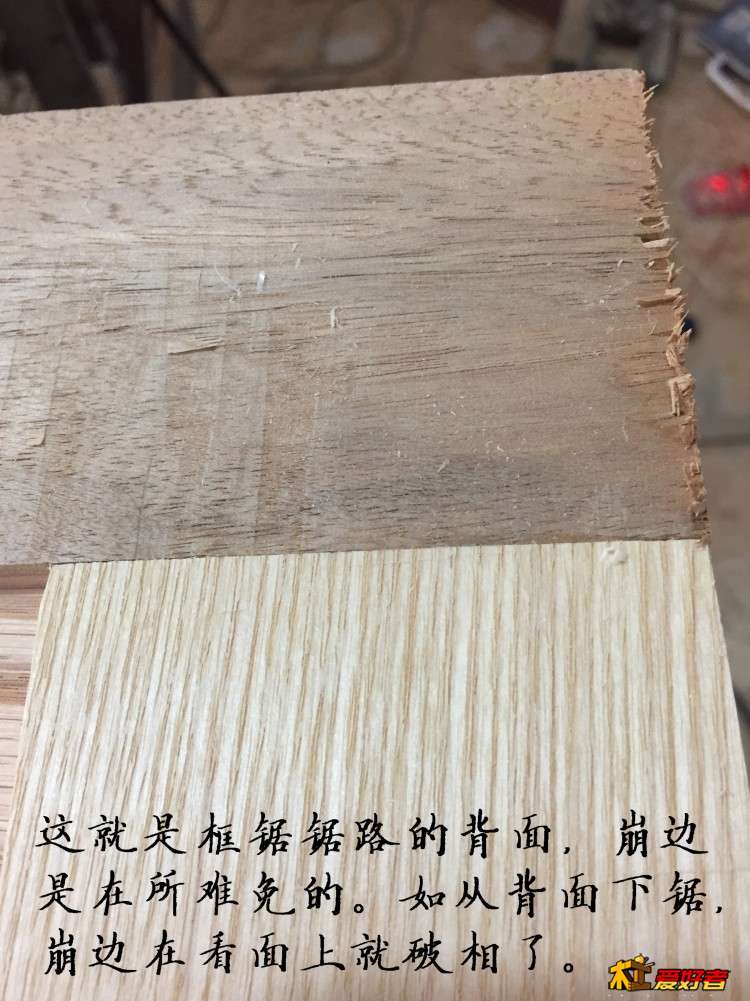 这就是框锯锯路的背面，崩边
是在所难免的。如从背面下锯，
崩边在看面上就破相了。
木工爱好者